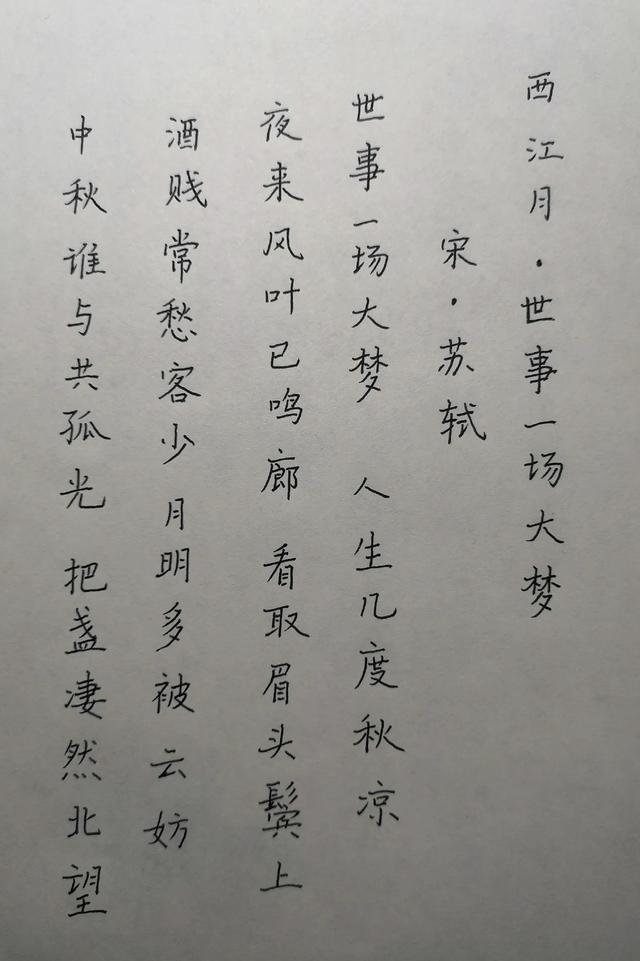 西江月·世事一场大梦
宋·苏轼
世事一场大梦 人生几度秋凉
夜来风叶已鸣廊 看取眉头鬓上
酒贱常愁客少 月明多被云妨
中秋谁与共孤光 把盏凄然北望